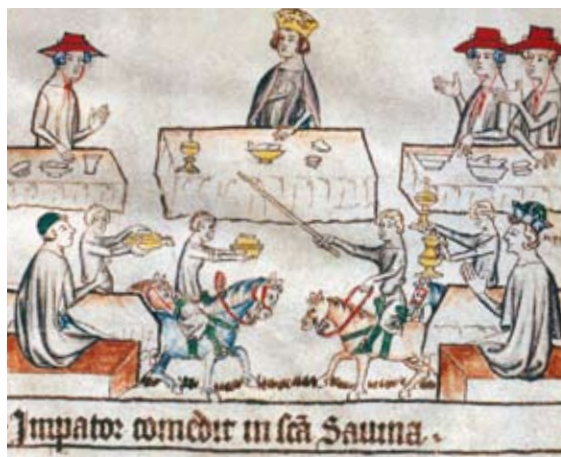 Impator comedit in scā Sauina .